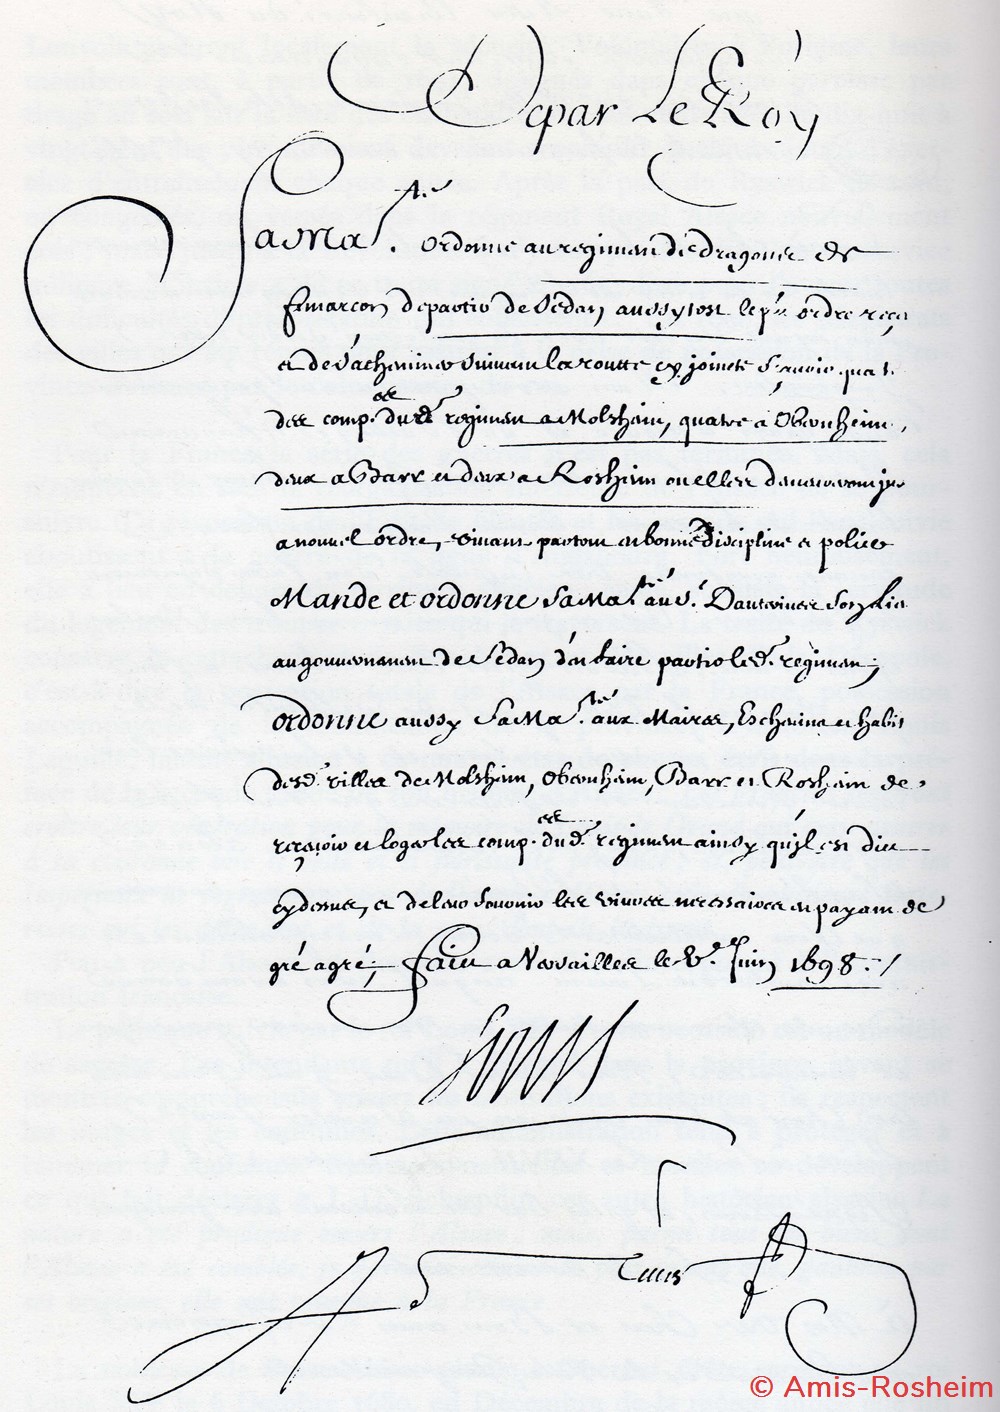 De par Le Roy
Sa Ma.té ordonne au regiment de dragons de
fimarcon de partir de Sedan aussytost le p.nt ordre receu
et de s'acheminer suivant la routte cy jointe Sçavoir quatre
des comp.es dud. regiment a Molsheim, quatre a Obernheim,
deux a Barr et deux a Rosheim ou elles demeureront jus
a nouvel ordre, vivant partout en bonne discipline et police
Mande et ordonne Sa Ma.té au S.r Dauterives Son Lie
au gouvernement de Sedan d'en faire partir led. regiment;
ordonne aussy Sa Ma.té aux Maires, Eschevins et habit
desd. villes de Molsheim, Obernheim, Barr et Rosheim de
recevoir et loger les comp.es dud. regiment ainsy qu'jl est dit
cy dessus, et de leur fournir les vivres necessaires en payant de
gré agré; Fait a Versailles le V.e Juin 1698./
Louis
© Amis-Rosheim